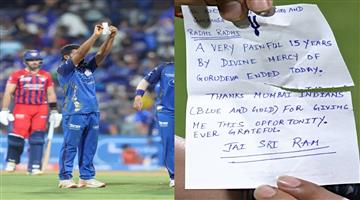 RADHI RADHI
A VERY PAINFUL 15 YEARS
BY DIVINE MERCY OF
GURUDEVA ENDED TODAY.
THANKS MUMBAI INDIANS
(BLUE AND GOLD) FOR GIVING
ME THIS OPPORTUNITY.
EVER GRATEFUL.
JAI SRI RAM